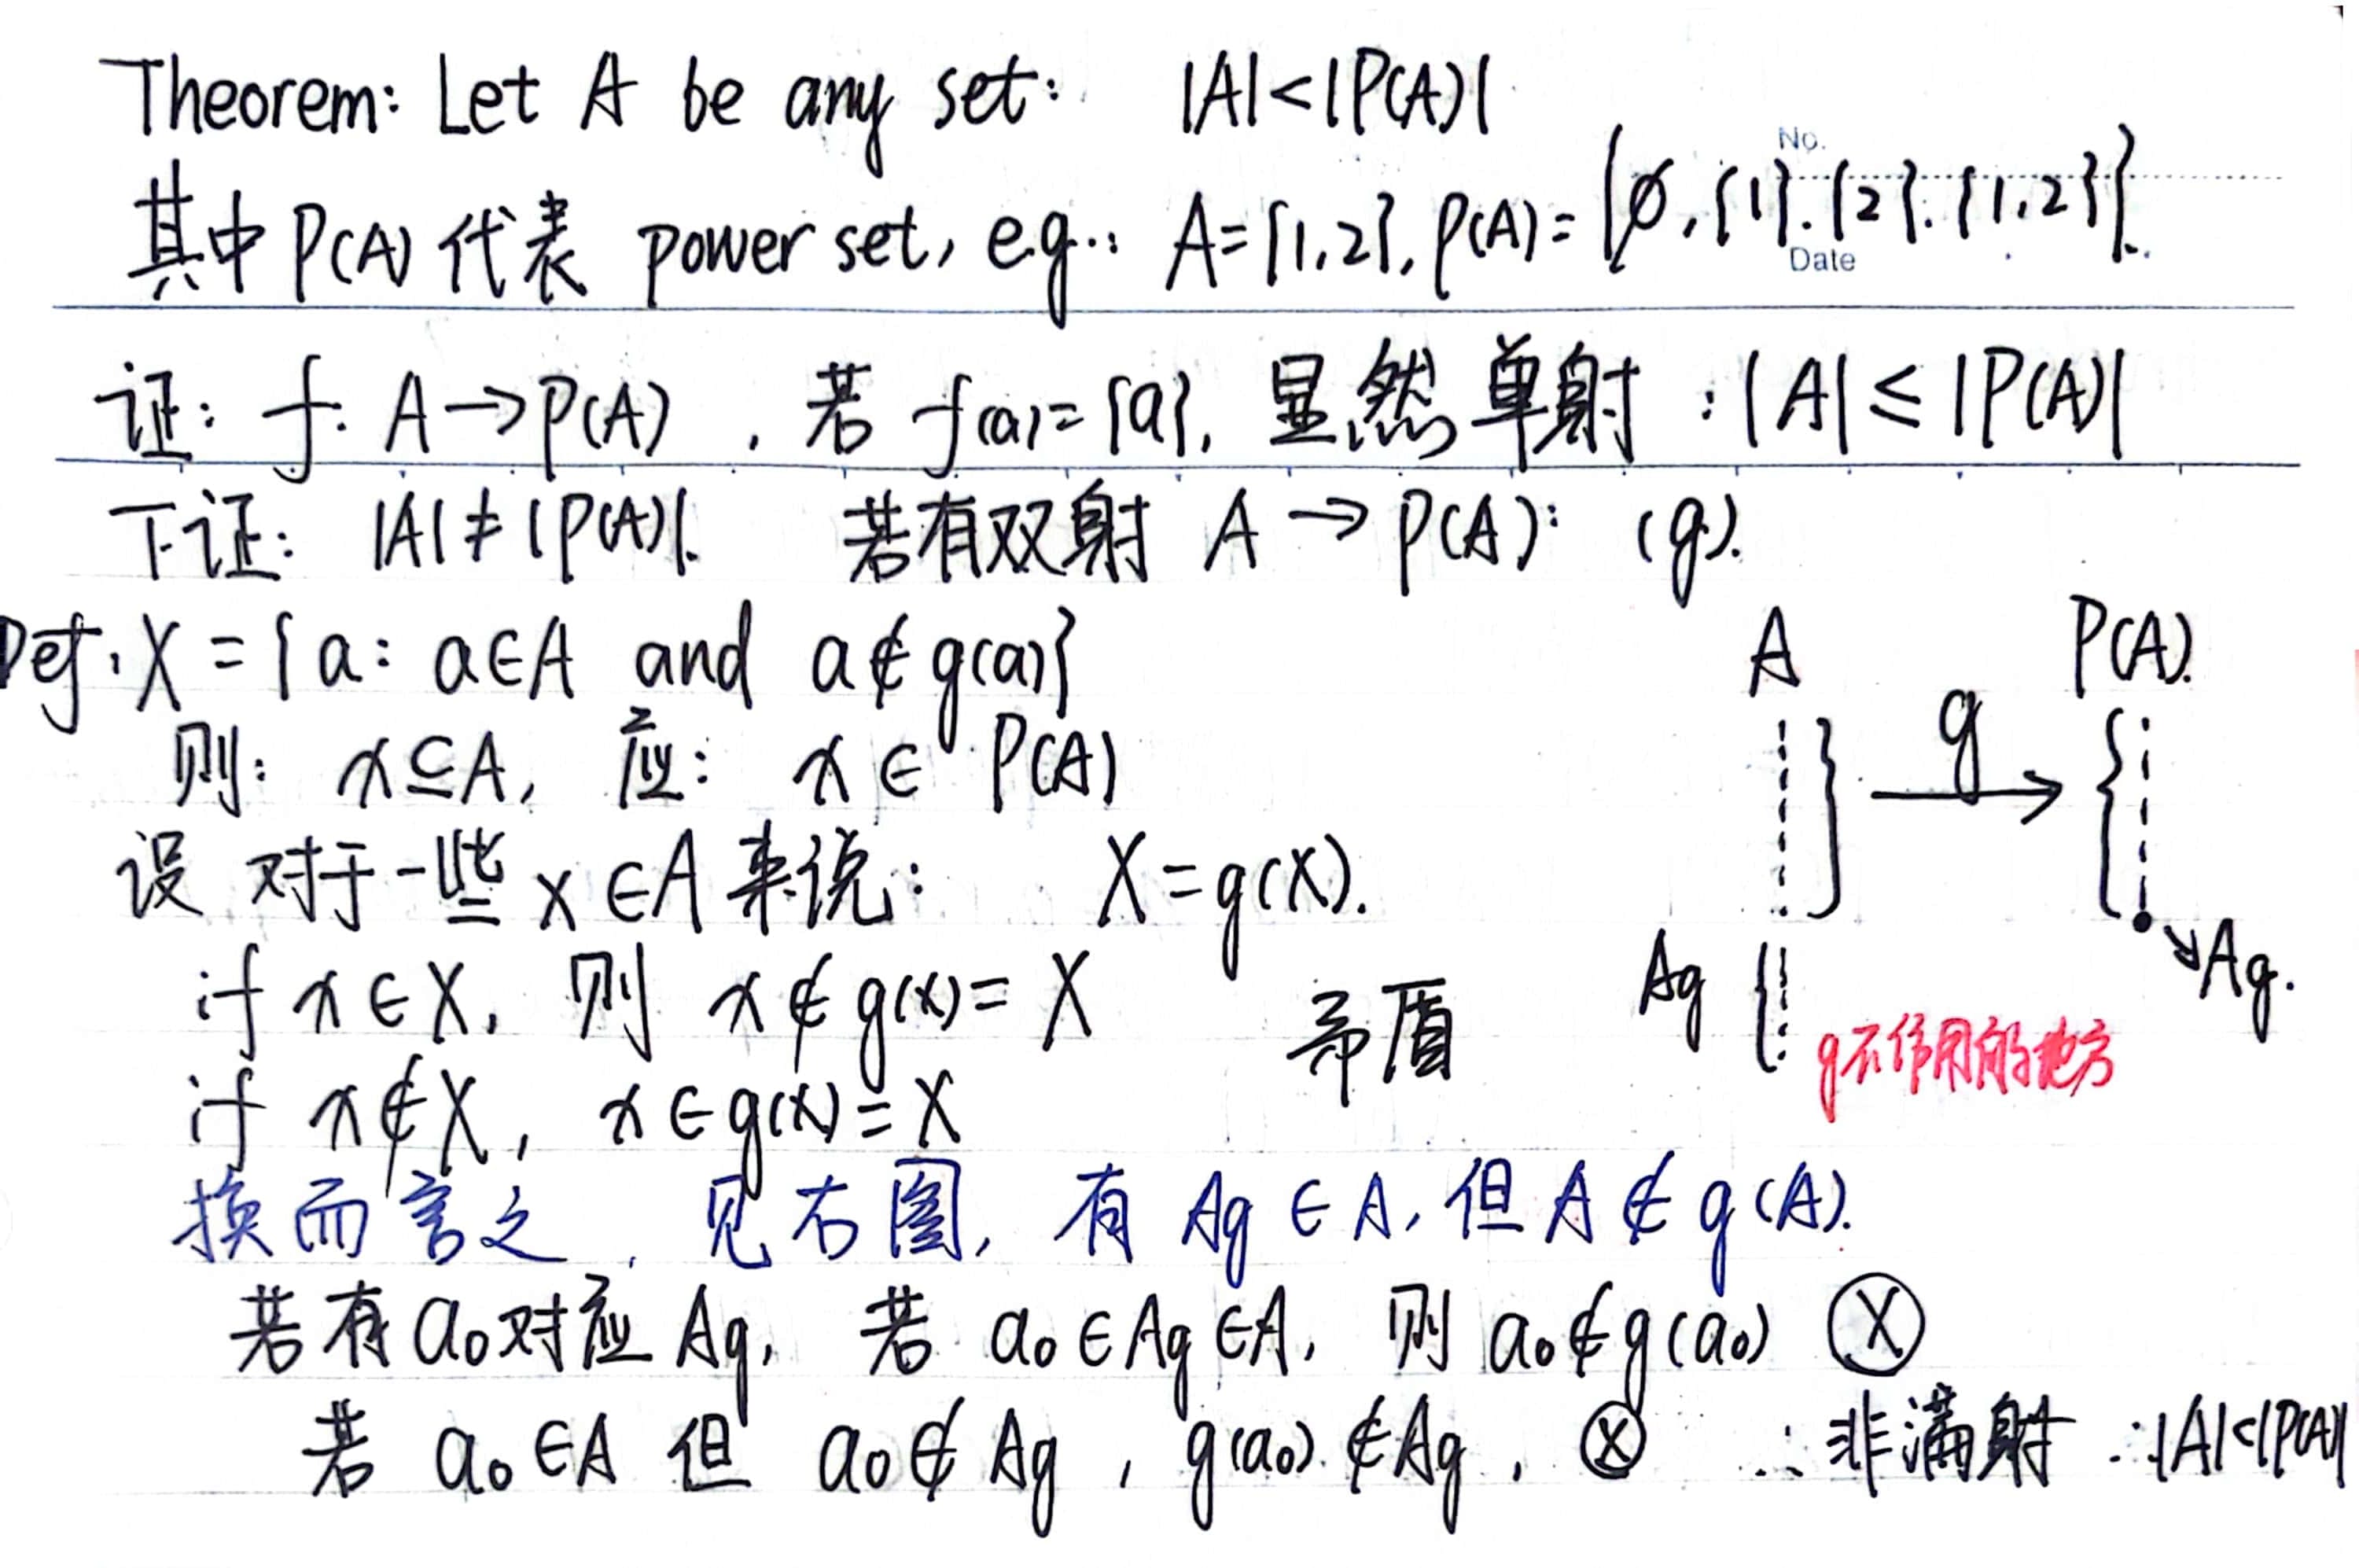 Theorem: Let A be any set: |A|<|P(A)|
No.
其中 P(A) 代表 power set, e.g.: A={1,2}, P(A)={∅,{1}.{2}.{1,2}}.
Date
证: f: A→P(A) , 若 f(a)={a}, 显然单射 : |A| ≤ |P(A)|
下证: |A| ≠ |P(A)|. 若有双射 A → P(A): (g).
Def: X = {a: a∈A and a∉g(a)}
则: x⊆A, 应: x ∈ P(A)
设 对于一些 x∈A 来说: X=g(x).
if x∈X, 则 x∉g(x)=X 矛盾
if x∉X, x∈g(x)=X
A P(A).
g
Ag Ag.
g不作用的地方
换而言之, 见右图, 有 Ag ∈ A, 但 A ∉ g(A).
若有 a₀对应 Ag, 若 a₀∈Ag∈A, 则 a₀∉g(a₀) Ⓧ
若 a₀∈A 但 a₀∉Ag , g(a₀)∉Ag , Ⓧ ∴非满射 ∴|A|<|P(A)|